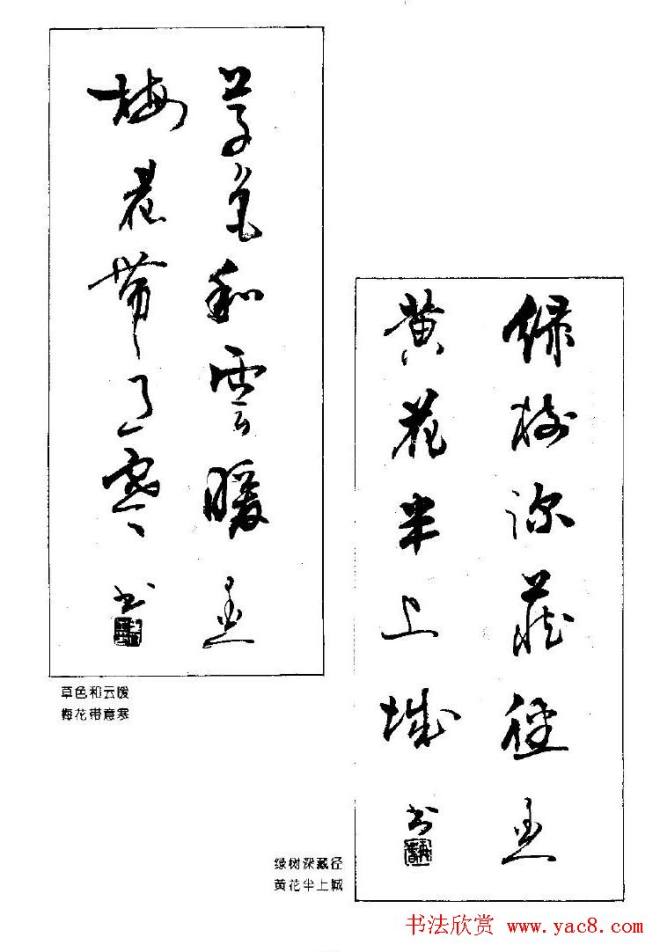 草色和雲暖
梅花帶寒
書
草色和云暖
梅花带意寒
绿樹深藏徑
黄花半上城
書
绿树深藏径
黄花半上城
书法欣赏 www.yac8.com